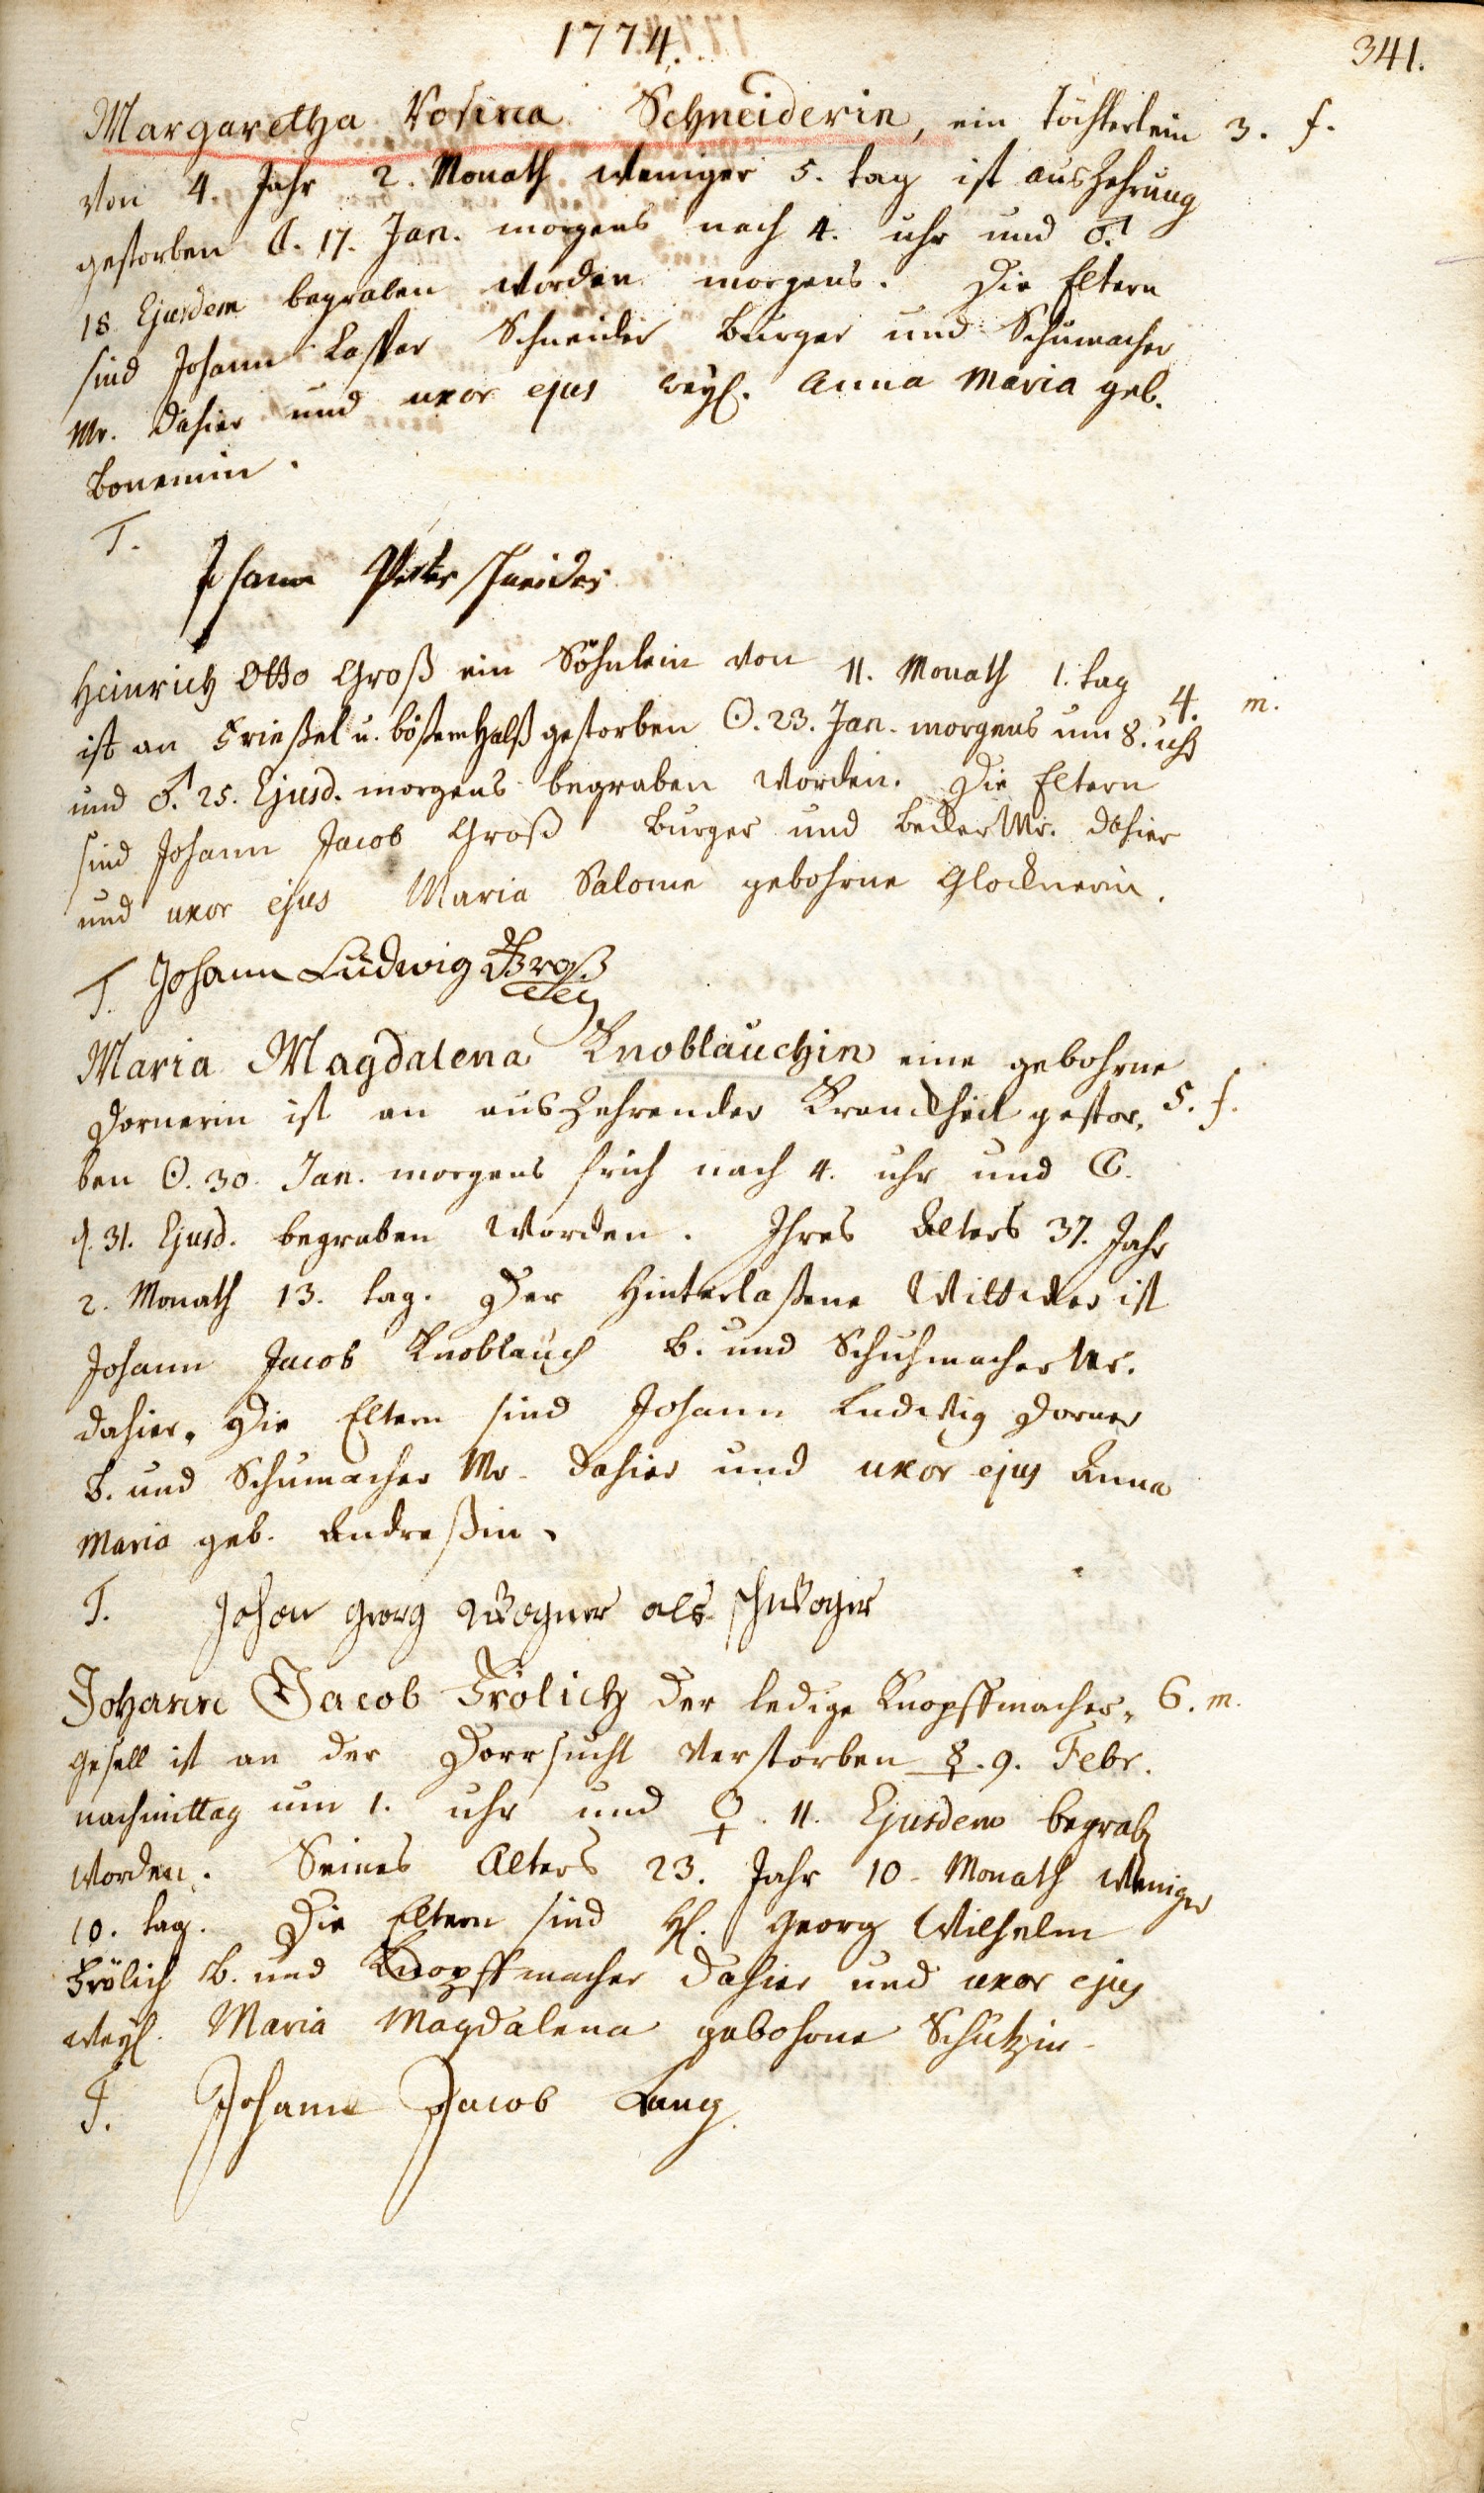 1774.
341.
Margaretha Rosina Schneiderin, ein Töchterlein 3. f.
von 4. Jahr 2. Monath weniger 5. tag ist auszehrung
gestorben ☾. 17. Jan. morgens nach 4. uhr und ♂.
18 Ejusdem begraben worden morgens. Die Eltern
sind Johann Casper Schneider burger und Schumacher
Mr. dahier und uxor ejus weyl. Anna Maria geb.
Bonennin.
T.
Johann Peter schneider
Heinrich Otto Groß ein Söhnlein von 11. Monath 1. tag 4. m.
ist an Frießel u. bößem Halß gestorben ☉. 23. Jan. morgens um 8. uhr
und ♂. 25. Ejusd. morgens begraben worden. Die Eltern
sind Johann Jacob Groß burger und Becker Mr. dahier
und uxor ejus Maria Salome gebohrne Glocknerin.
T. Johann Ludwig Groß
Maria Magdalena Knoblauchin eine gebohrne
Dornerin ist an auszehrender Kranckheit gestor- 5. f.
ben ☉. 30. Jan. morgens frich nach 4. uhr und ☾.
d. 31. Ejusd. begraben worden. Ihres Alters 37. Jahr
2. Monath 13. tag. Der Hinterlaßene Wittwer ist
Johann Jacob Knoblauch b. und Schuhmacher Mr.
dahier. Die Eltern sind Johann Ludwig Dorner
b. und Schumacher Mr. dahier und uxor ejus Anna
Maria geb. Andreßin.
T. Johan Georg Wagner als schwager
Johann Jacob Frölich der ledige Knopffmacher- 6. m.
gesell ist an der Dorrsucht verstorben ☿. 9. Febr.
nachmittag um 1. uhr und ♀. 11. Ejusdem begrab
worden. Seines Alters 23. Jahr 10. Monath weniger
10. tag. Die Eltern sind H. Georg Wilhelm
Frölich b. und Knopffmacher dahier und uxor ejus
weyl. Maria Magdalena gebohrne Schützin.
T. Johann Jacob Lang